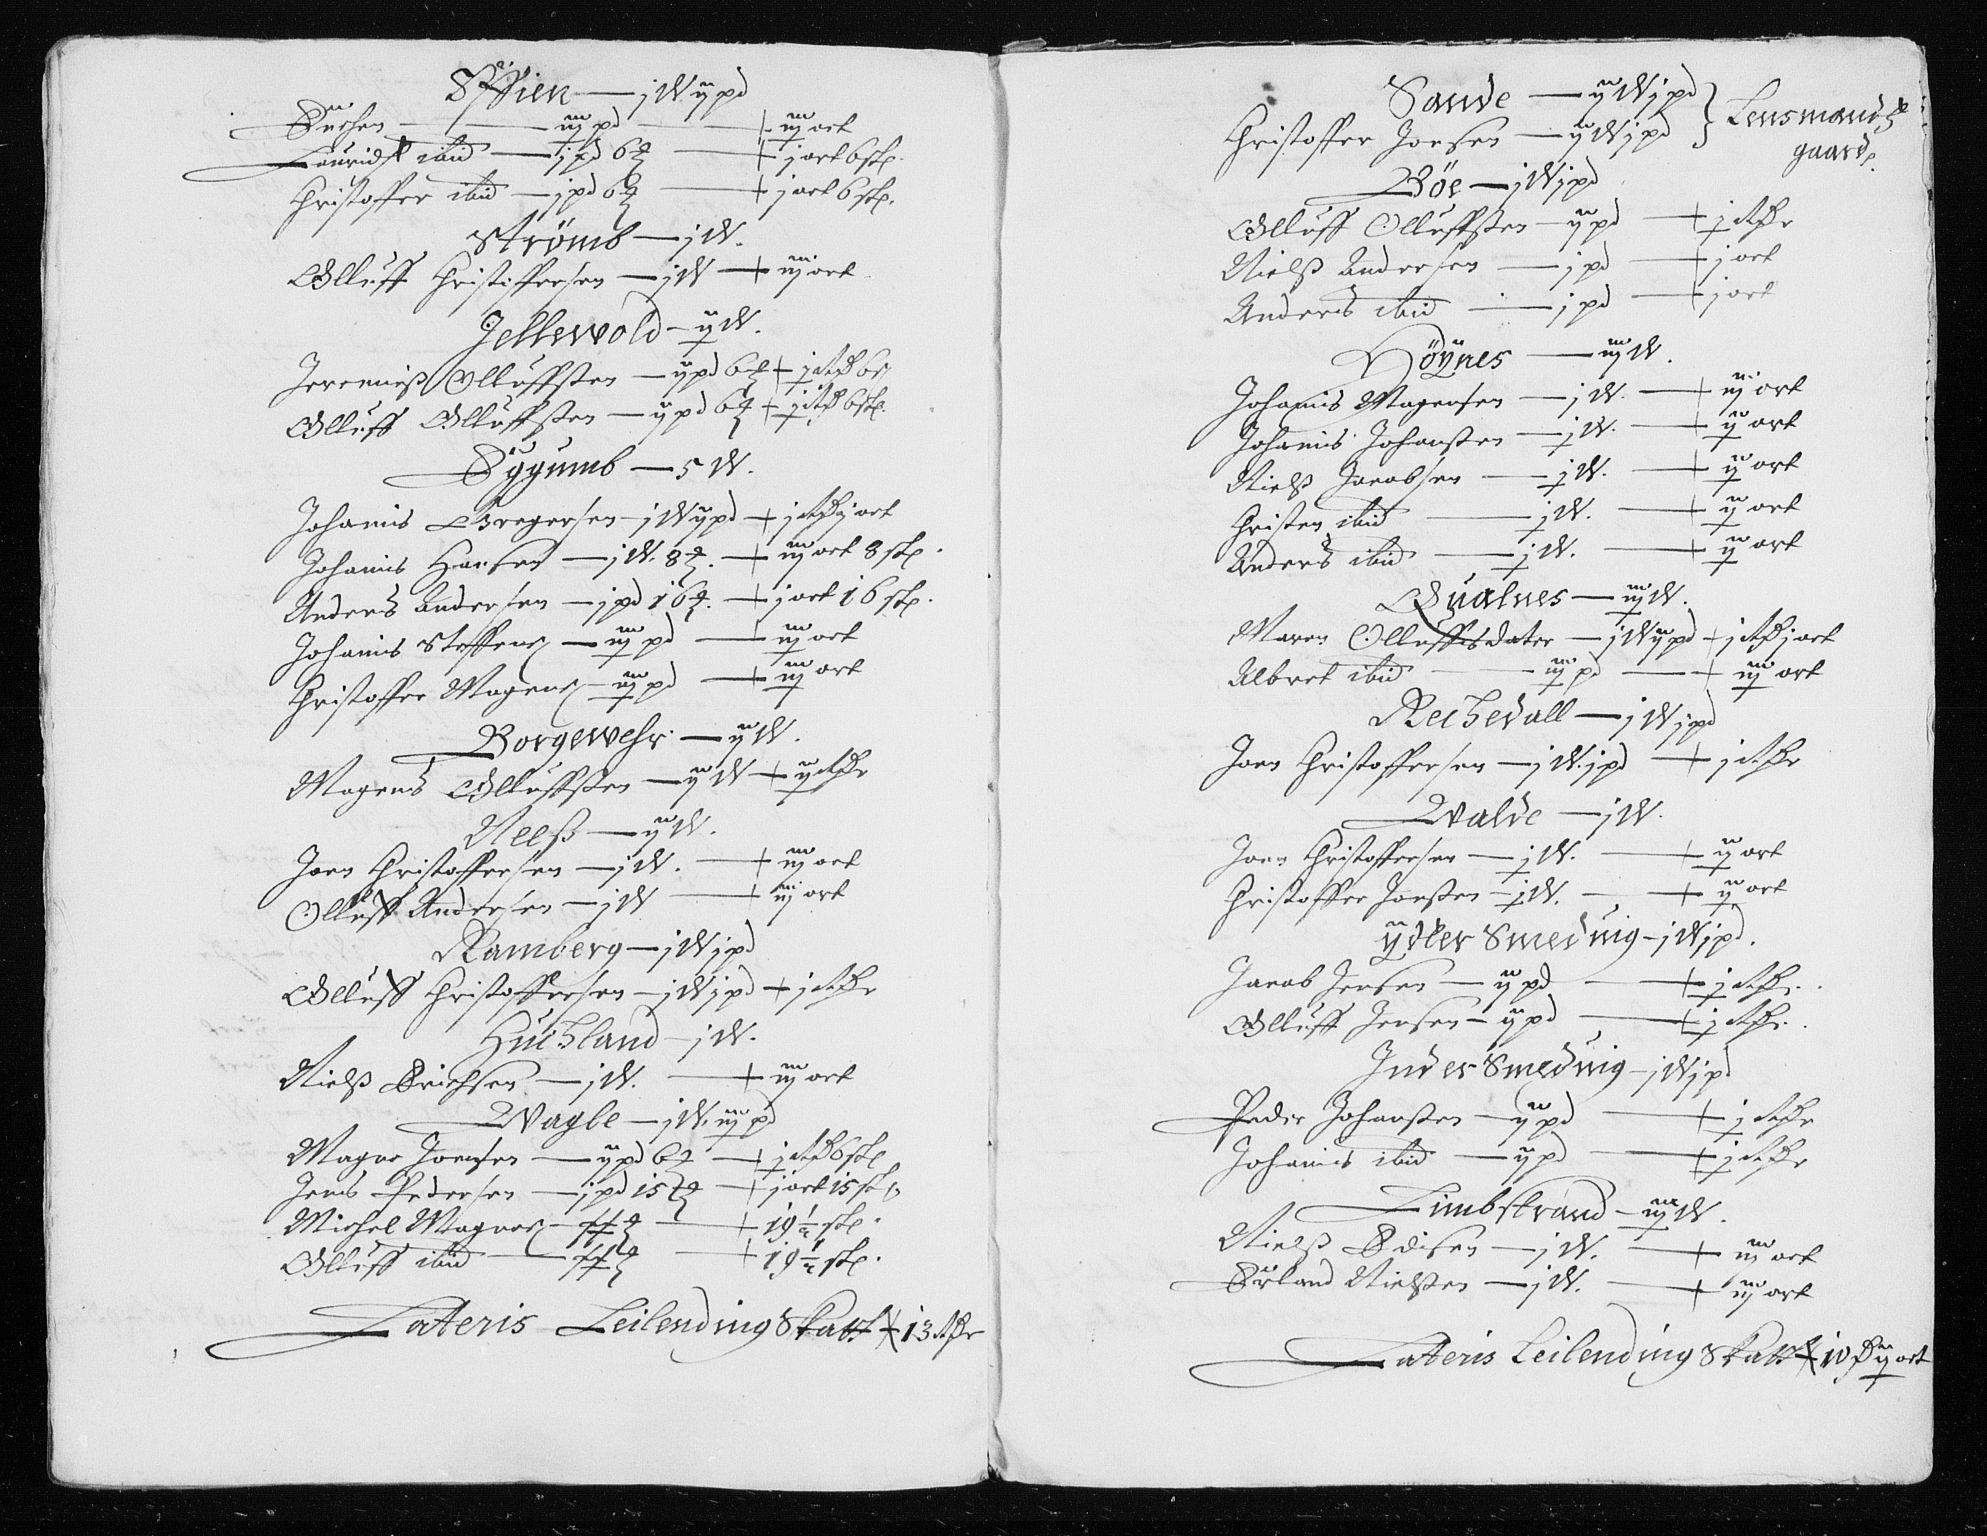 Øffsien — j W ij pd
— iij pd — + iij ort
Lauridtz ibid — j pd 6 ℔ — + j ort 6 sk.
Christoffer ibid — j pd 6 ℔ — + j ort 6 sk.
Strömb — j W.
Olluff Christoffersen — j W — + iij ort
Jellewold — ij W.
Jeremias Olluffsten — ij pd 6 ℔ + j Rd 6 s
Olluff Olluffsten — ij pd 6 ℔ + j Rd 6 sk.
Bygumb — 5 W.
Johanis Gregersen — j W ij pd + j Rd j ort
Johanis Hansen — j W. 8 ℔. — + iij ort 8 sk.
Anders Andersen — j pd 16 ℔. — + j ort 16 sk.
Johanis Steffens — iij pd — iij ort
Christoffer Mogens — iij pd — + iij ort
Borgewehr — ij W.
Mogens Olluffsten — ij W + ij Rdr
Neeß — ij W.
Joen Christoffersen — j W. — + iij ort
Olluff Andersen — j W — + iij ort
Ramberg — j W j pd
Olluff Christoffersen — j W j pd + j Rdr
Huchland — j W.
Nielß Erichsen — j W. — + iij ort
Wagle — j W. iij pd
Mogns Joensen — ij pd 6 ℔ — + j Rd 6 sk
Jens Pedersen — j pd 15 ℔ — + j ort 15 sk
Michel Mogens — ℔ — + 19 ½ sk.
Olluff ibid — ℔ — + 19 ½ sk.
Lateris Leilending Skatt + 13 Rdr
Sande — ij W j pd } Lensmandtz
Christoffer Joensen — ij W j pd gaard.
Böe — j W j pd
Olluff Olluffsten — ij pd — + j Rdr
Nielß Andersen — j pd — + j ort
Anders ibid — j pd — + j ort
Höÿnes — iij W.
Johanis Mogensen — j W. — + iij ort
Johanis Johansten — j W. — + ij ort
Nielß Jacobsen — j W. — + ij ort
Christen ibid — j W. — + ij ort
Anders ibid — j W. — + ij ort
Qualnes — iij W.
Maren Olluffsdater — j W ij pd + j Rd j ort
Albret ibid — iij pd — + iij ort
Rechedall — j W j pd
Joen Christoffersen — j W. j pd — + j Rdr
Walde — j W.
Joen Christoffersen — j W. — + ij ort
Christoffer Jonsten — j W. — + ij ort
ÿtter Smeduig — j W j pd.
Jacob Jensen — ij pd — + j Rdr.
Olluff Jensen — ij pd — + j Rdr.
Inder Smeduig — j W j pd
Peder Johansten — ij pd — + j Rdr
Johanis ibid — ij pd — + j Rdr
Limbstrand — iij W.
Nielß — j W. — + iij ort
Erland Nielsten — j W. — + iij ort
Lateris Leilending Skatt + 10 d ij ort